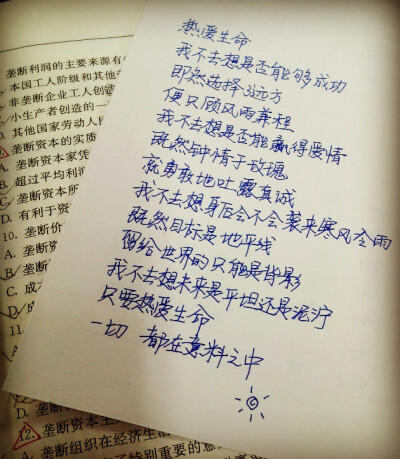 垄断利润的主要来源有
本国工人阶级和其他
非垄断企业工人创造
小生产者创造的一
其他国家劳动人民
垄断资本的实质
A. 垄断资本家凭
B. 超过平均利润
C. 垄断资本所
D. 有利于资
10. 垄断价
A. 垄断
B. 垄断
C. 成
D.
11.
D. 垄断
12. 垄断资本主
垄断组织在经济生
了特别重要的意
热爱生命
我不去想是否能够成功
即然选择了远方
便只顾风雨兼程
我不去想是否能赢得爱情
既然钟情于玫瑰
就勇敢地吐露真诚
我不去想身后会不会袭来寒风冷雨
既然目标是地平线
留给世界的只能是背影
我不去想未来是平坦还是泥泞
只要热爱生命
一切 都在意料之中